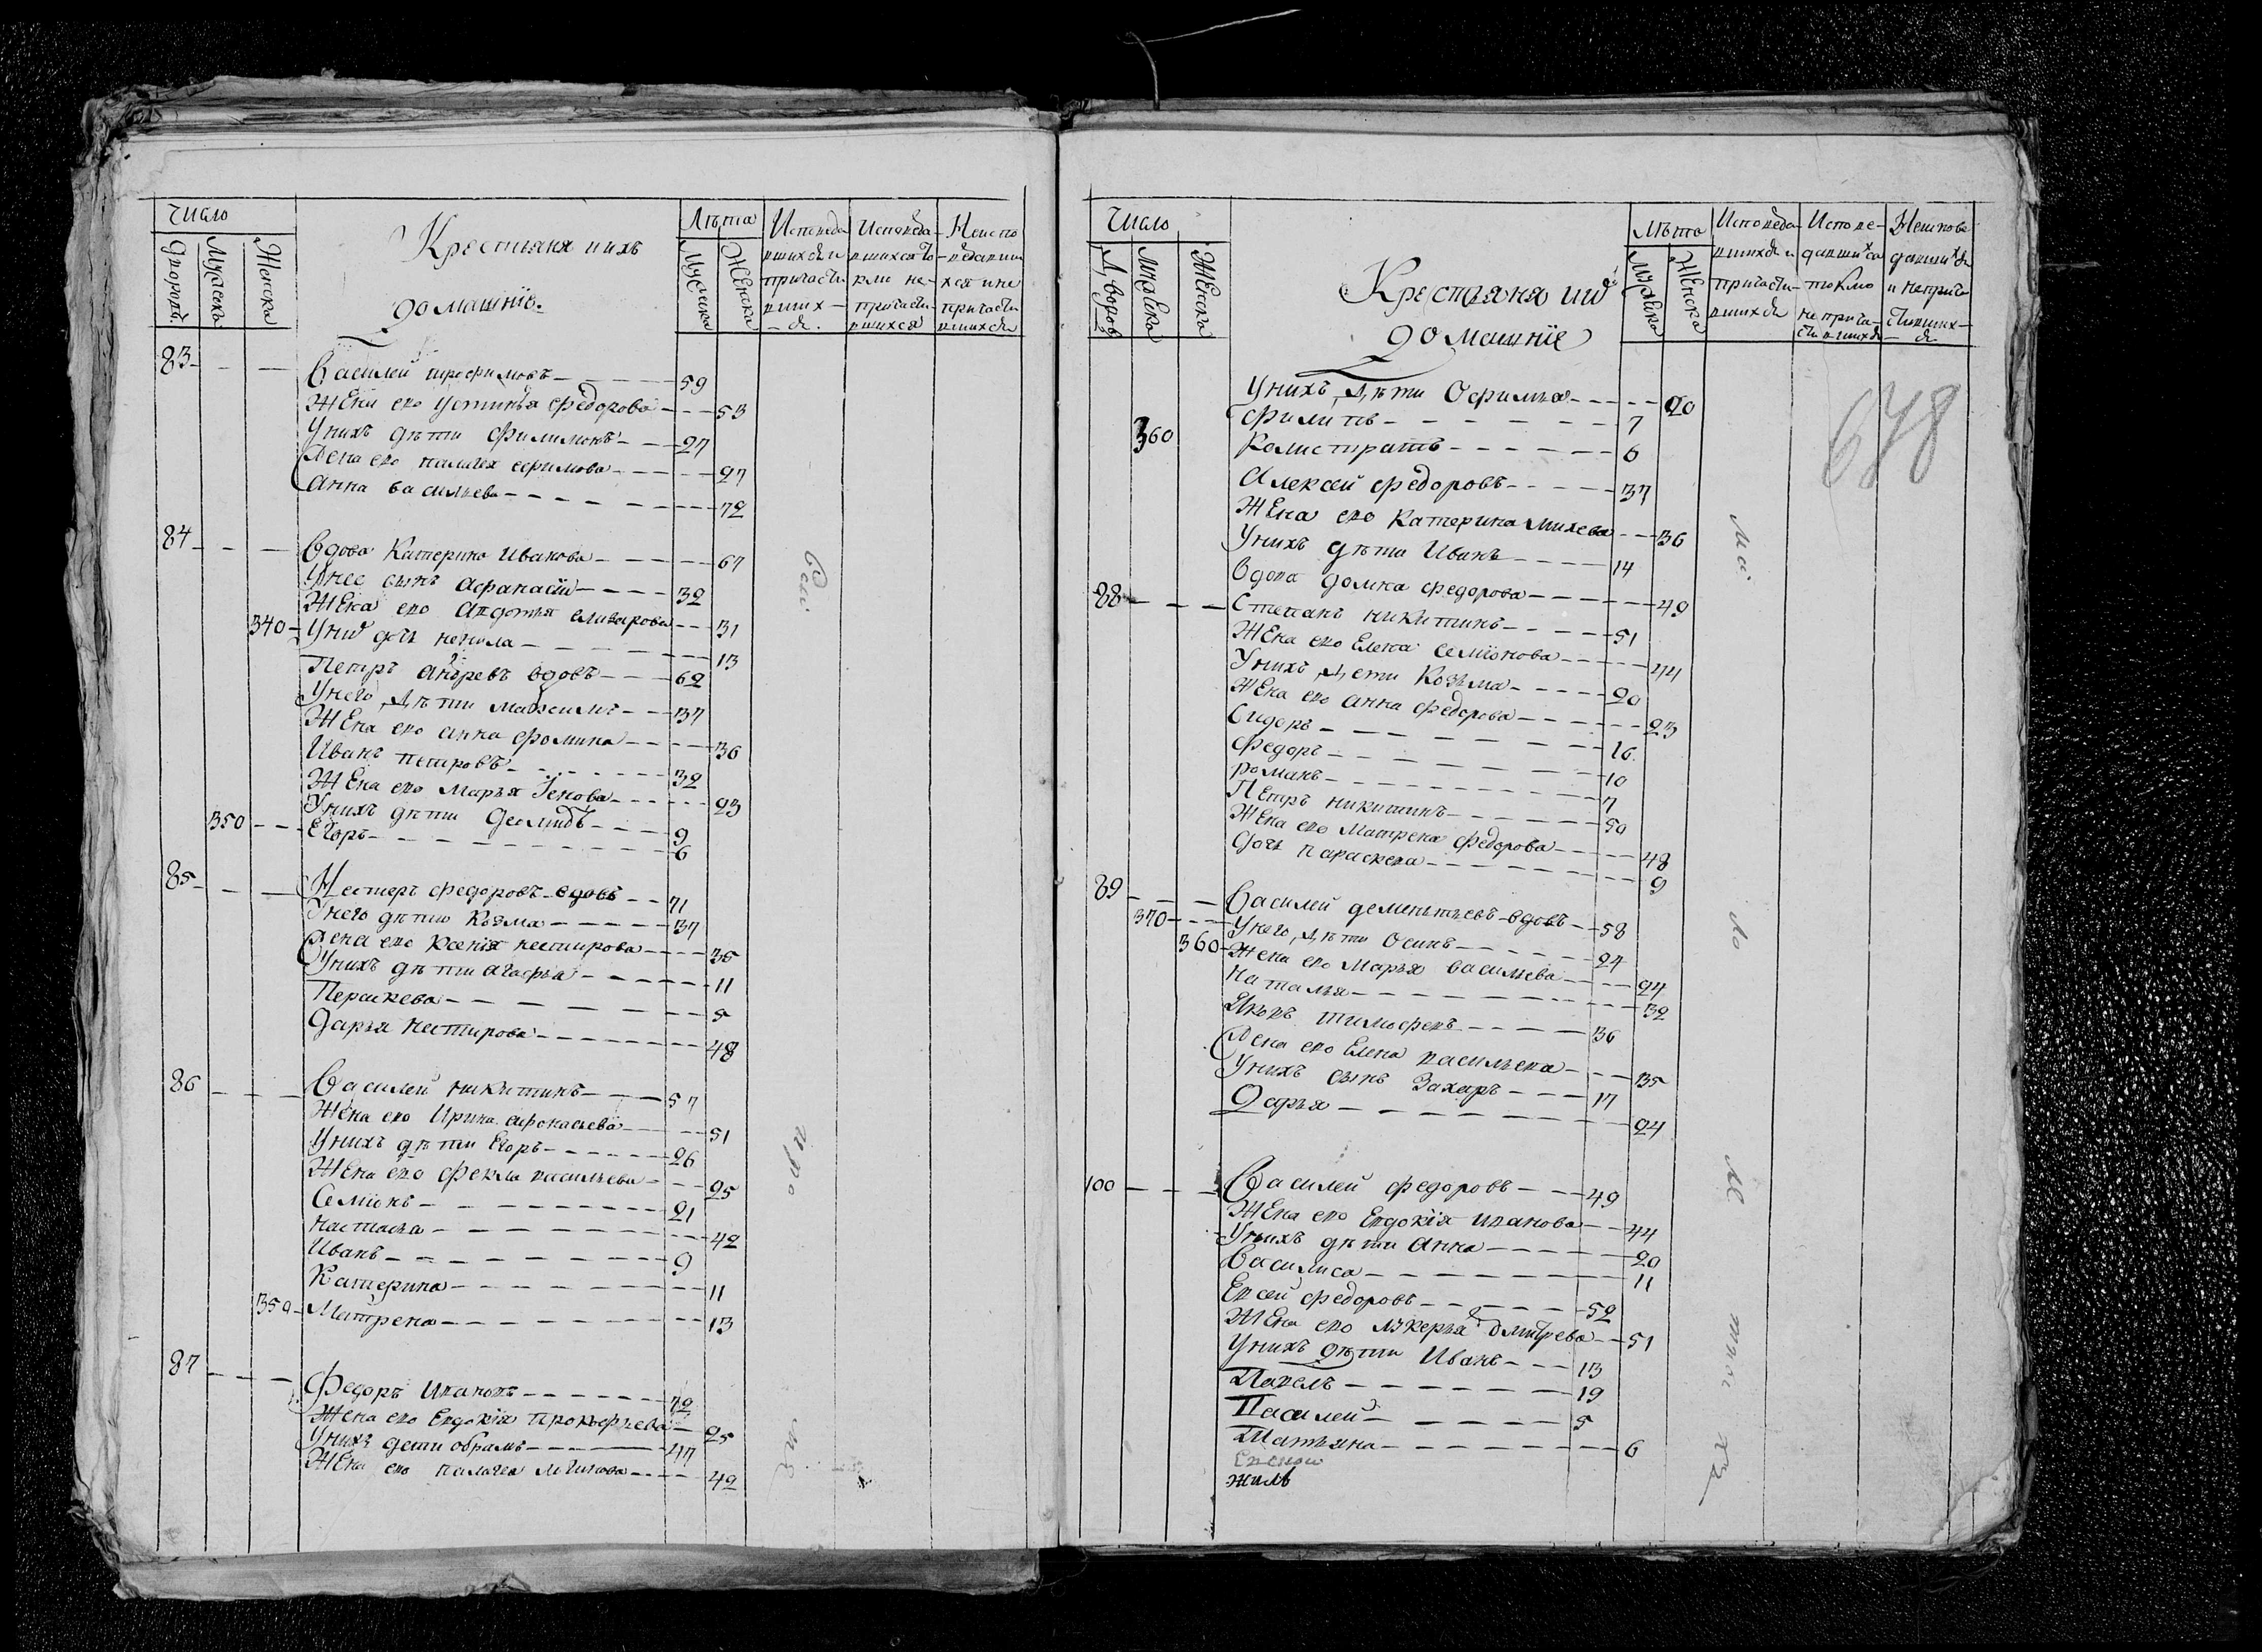 Число
Дворовъ
Мужеска
Женска
Крестьяня ихъ
домашнїе
Лѣта
Мужеска
Женска
Исповеда
вшихся и
причасти
вших-
ся.
Исповеда-
вшихся то
кмо не-
причасти
вшихся
Неиспо
-ведавши
хся и не
причасти
вшихся
83
Василей трофимовъ 59
Жена ево устинья федорова 53
Унихъ дѣти филимонъ 27
Жена ево палагея ефимова 27
Анна васильева 72
84
Вдова Катерина Иванова 67
Унее сынъ афанасїй 32
Жена ево Авдотья 31
340 Уних дочь ненила 13
Петръ андревъ вдовъ 62
Унего дѣти максимъ 37
Жена ево анна фомина 36
Иванъ петровъ 32
Жена ево Марья 23
Унихъ дѣти 9
350 Егоръ 6
85
Нестеръ федоровъ вдовъ 71
Унего дѣти Козма 37
Жена ево ксенїя нестирова 36
Унихъ дѣти агафья 11
Пераскева 5
Дарья нестирова 48
86
Василей никитинъ 57
Жена ево Ирина афонасьева 51
Унихъ дѣти Егоръ 26
Жена ево фекла васильева 25
Семїонъ 21
настасья 42
Иванъ 9
Катерина 11
350 Матрена 13
87
Федоръ Ивановъ 72
Жена ево Евдокїя прокофьева 25
Унихъ дети обрамъ 47
Жена ево палагея 42
Число
Дворов
Мужеска
Женска
Крестьяня их
домашнїе
Лѣта
Мужеска
Женска
Исповеда-
вшихся и
причасти-
вшихся
Испове-
давшихся
токмо
неприча-
стившихся
Неиспове
давшихся
и неприча
стивших-
ся
678
Унихъ дѣти Офимья 20
филипъ 7
360 Колистратъ 6
Алексей федоровъ 37
Жена ево Катерина михева 36
Унихъ дѣти Иванъ 14
Вдова домна федорова 49
88
Степанъ никитинъ 51
Жена ево Елена семїонова 44
Унихъ дети Козьма 20
Жена ево анна федорова 23
Сидоръ 16
федоръ 10
романъ 7
Петръ никитинъ 50
Жена ево Матрена федорова 48
дочь параскева 9
89
Василей дементьевъ вдовъ 58
370 Унего дѣти Осипъ 24
360 Жена ево Марья васильева 24
Наталья 32
Яковъ тимофевъ 36
Жена ево Елена васильева 35
Унихъ сынъ Захаръ 17
Дарья 24
100
Василей федоровъ 49
Жена ево Евдокїя иванова 44
Унихъ дѣти анна 20
Василиса 11
Евсей федоровъ 52
Жена ево лукерья дмитрева 51
Унихъ дѣти Иванъ 13
Павелъ 19
Василей 5
Татьяна 6